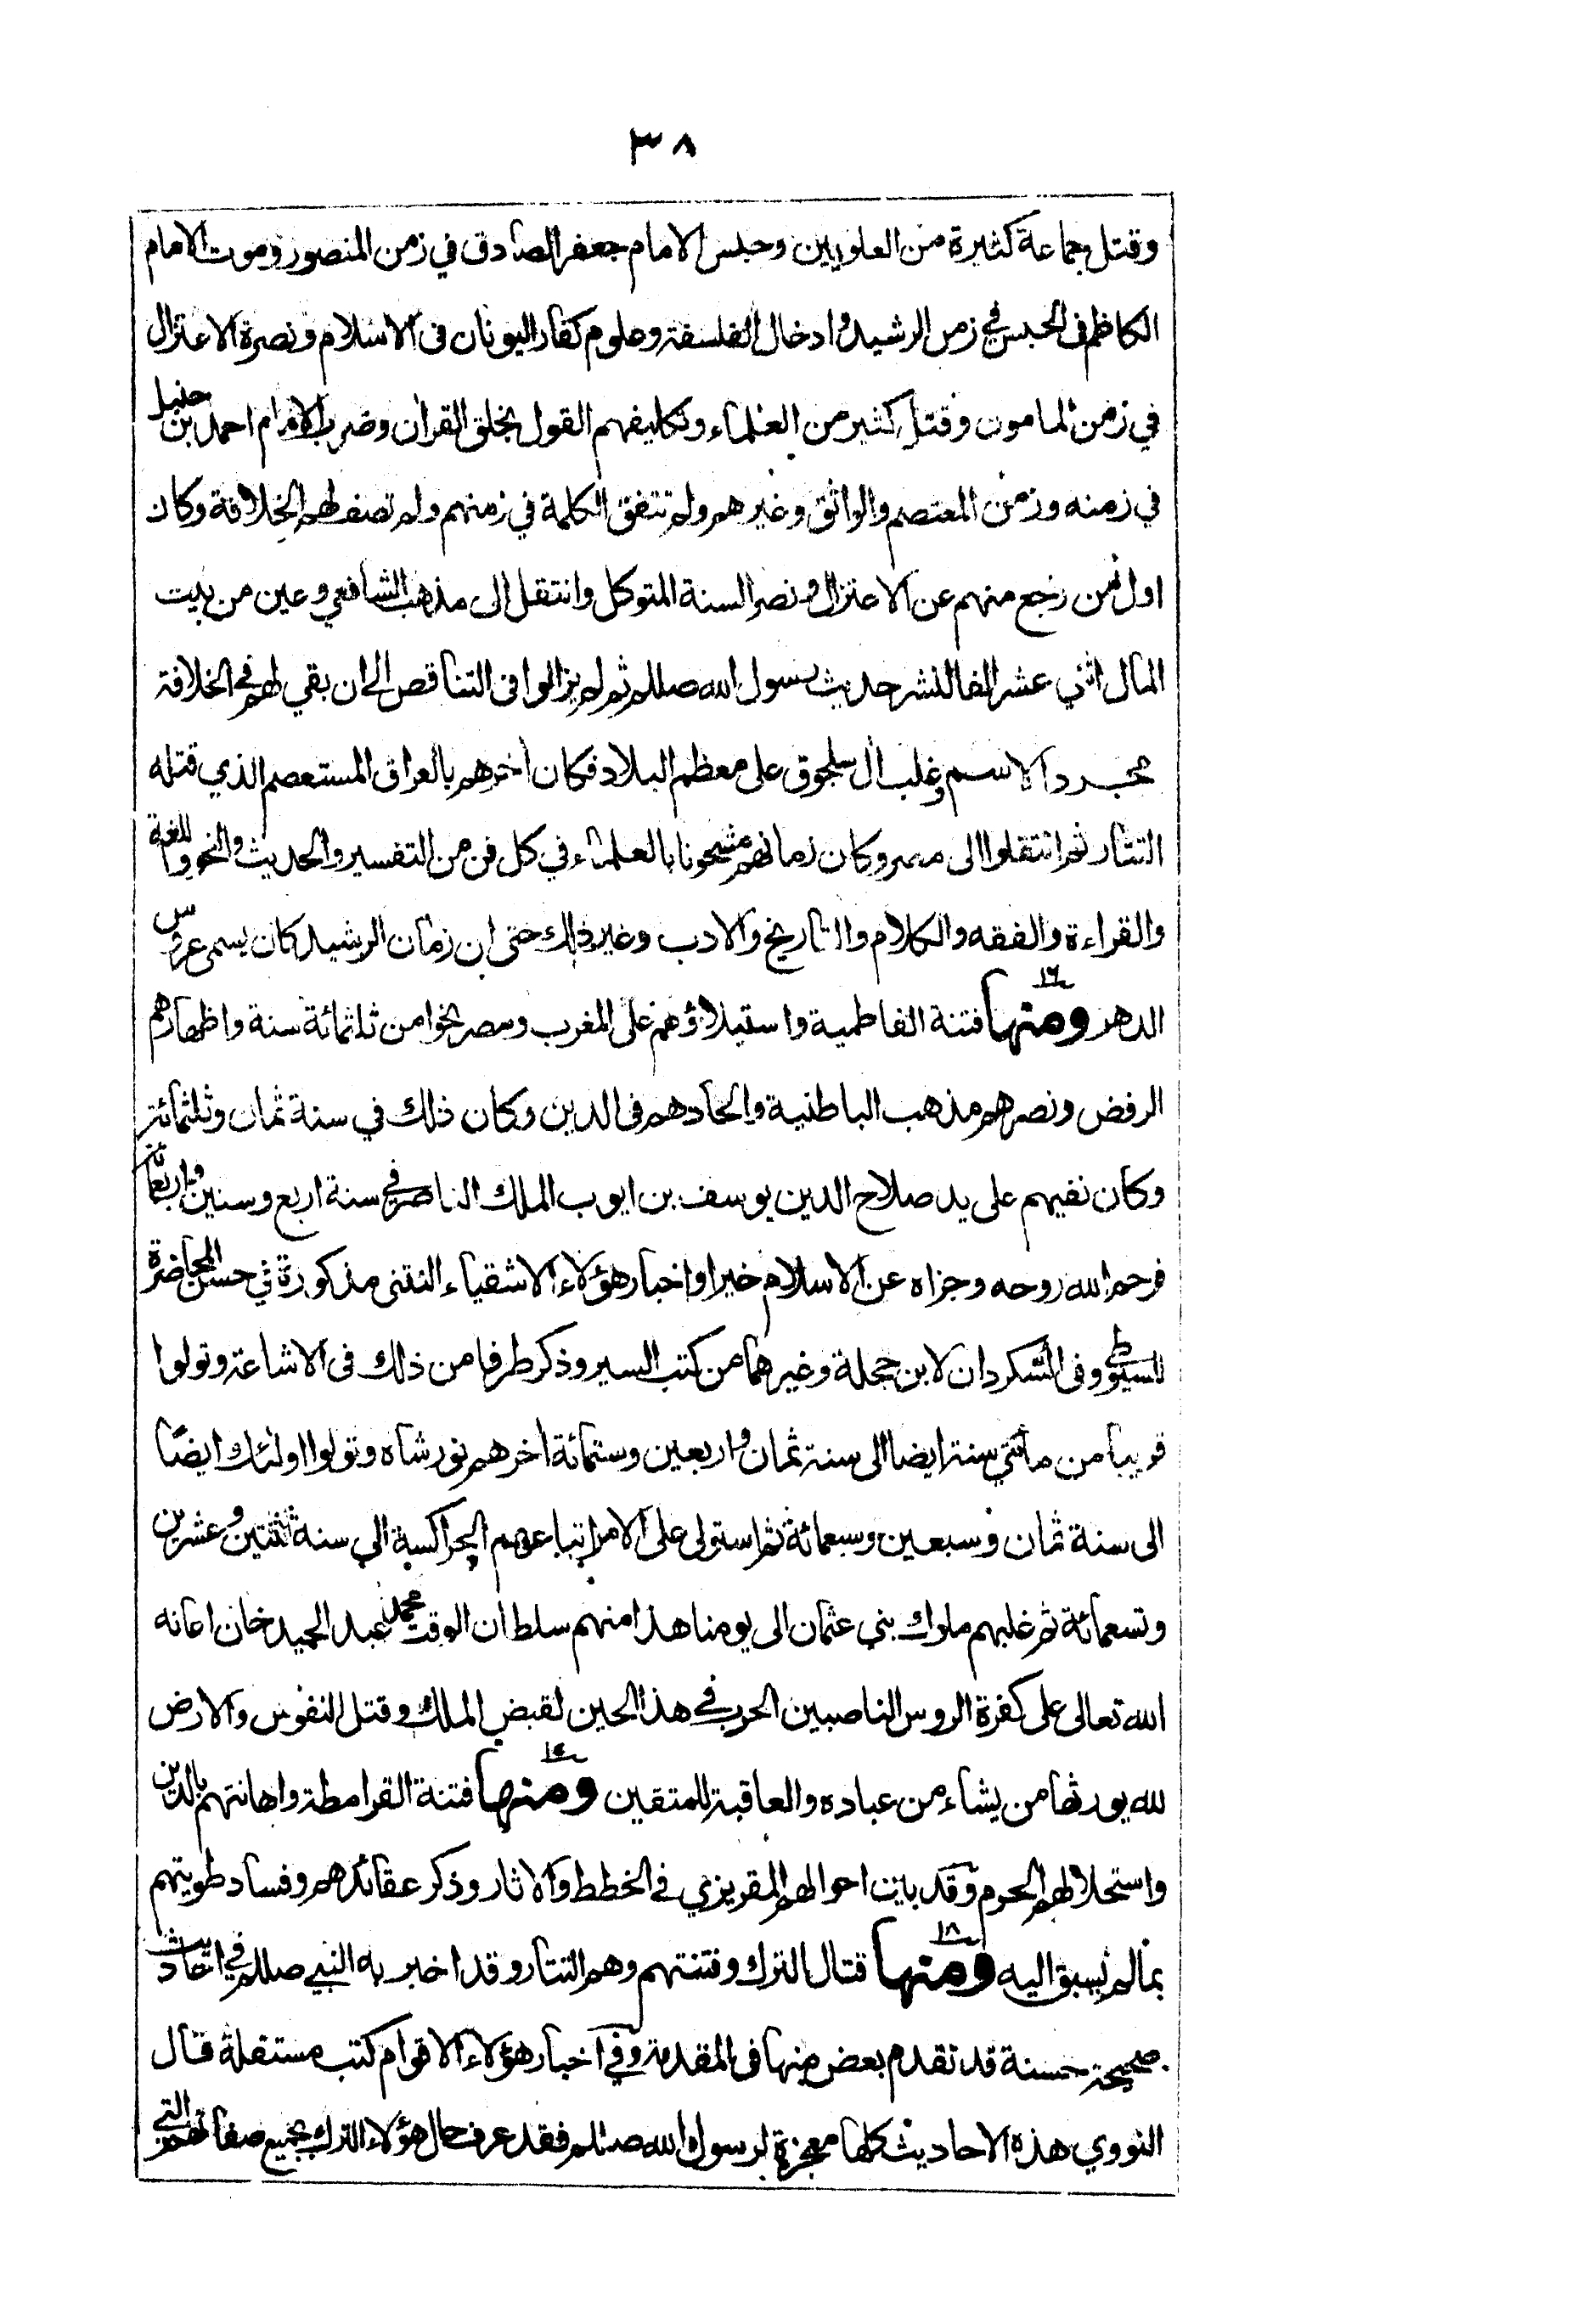 ٣٨
وقتل جماعة كثيرة من العلويين وحبس الامام جعفر الصادق في زمن المنصور وموت الامام
الكاظم فى الحبس في زمن الرشيد وادخال الفلسفة وعلوم كفار اليونان فى الاسلام ونصرة الاعتزال
في زمن المامون وقتل كثير من العلماء وتكليفهم القول بخلق القران وضرب الامام احمد بن حنبل
في زمنه وزمن المعتصم والواثق وغيرهم ولم تتفق الكلمة في زمنهم ولم تصف لهم الخلافة وكان
اول من رجع منهم عن الاعتزال ونصر السنة المتوكل وانتقل الى مذهب الشافعي وعين من بيت
المال اثني عشر الفا لنشر حديث رسول الله صللم ثم لم يزالوا فى التناقص الى ان بقي لهم في الخلافة
مجرد الاسم وغلب ال سلجوق على معظم البلاد فكان اخرهم بالعراق المستعصم الذي قتله
التتار ثم انتقلوا الى مصر وكان زمانهم مشحونا بالعلماء في كل فن من التفسير والحديث والنحو واللغة
والقراءة والفقه والكلام والتاريخ والادب وغير ذلك حتى ان زمان الرشيد كان يسمى عروس
الدهر ومنها ١٦ فتنة الفاطمية واستيلاؤهم على المغرب ومصر نحوا من ثلثمائة سنة واظهارهم
الرفض ونصرهم مذهب الباطنية والحادهم فى الدين وكان ذلك في سنة ثمان وثلثمائة
وكان نفيهم على يد صلاح الدين يوسف بن ايوب الملك الناصر في سنة اربع وستين واربعمائة
فرحم الله روحه وجزاه عن الاسلام خيرا واخبار هؤلاء الاشقياء النتنى مذكورة في حسن المحاضرة
للسيوطي وفى السكردان لابن حجلة وغيرهما من كتب السير وذكر طرفا من ذلك فى الاشاعة وتولوا
قريبا من مائتي سنة ايضا الى سنة ثمان واربعين وستمائة اخرهم نور شاه وتولوا اولئك ايضًا
الى سنة ثمان وسبعين وسبعمائة ثم استولى على الامر اتباعهم الجراكسة الي سنة ثنتين وعشرين
وتسعمائة ثم غلبهم ملوك بني عثمان الى يومنا هذا منهم سلطان الوقت محمد عبد الحميد خان اعانه
الله تعالى على كفرة الروس الناصبين الحرب في هذا الحين لقبض الملك وقتل النفوس والارض
لله يورثها من يشاء من عباده والعاقبة للمتقين ومنها ١٧ فتنة القرامطة واهانتهم بالدين
واستحلالهم الحرم وقد بين احوالهم المقريزي في الخطط والاثار وذكر عقائدهم وفساد طويتهم
بما لم يسبق اليه ومنها ١٨ قتال الترك وفتنتهم وهم التتار وقد اخبر به النبي صللم في احاديث
صحيحة حسنة قد تقدم بعض منها فى المقدمة وفي اخبار هؤلاء الاقوام كتب مستقلة قال
النووي هذه الاحاديث كلها معجزة لرسول الله صللم فقد عرف حال هؤلاء الترك بجميع صفاتهم التي